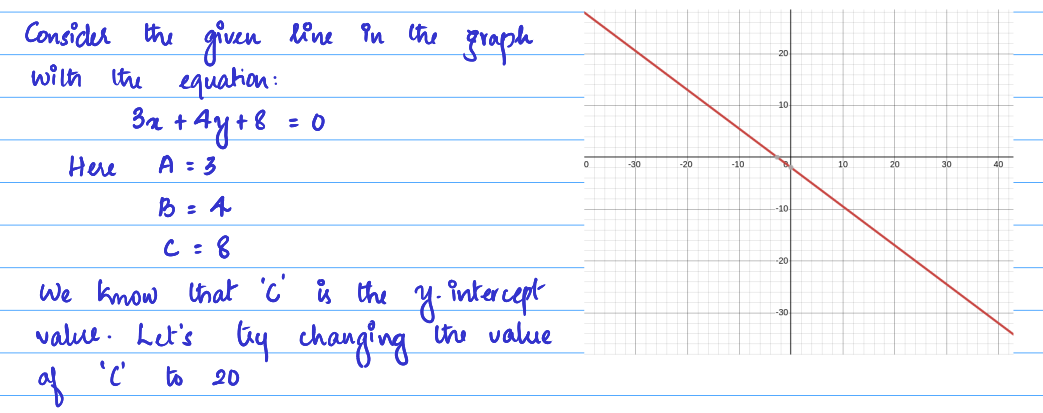 Consider the given line in the graph
with the equation:
3x + 4y + 8 = 0
Here A = 3
B = 4
C = 8
We know that 'C' is the y-intercept
value. Let's try changing the value
of 'C' to 20
20
10
0 -30 -20 -10 0 10 20 30 40
-10
-20
-30